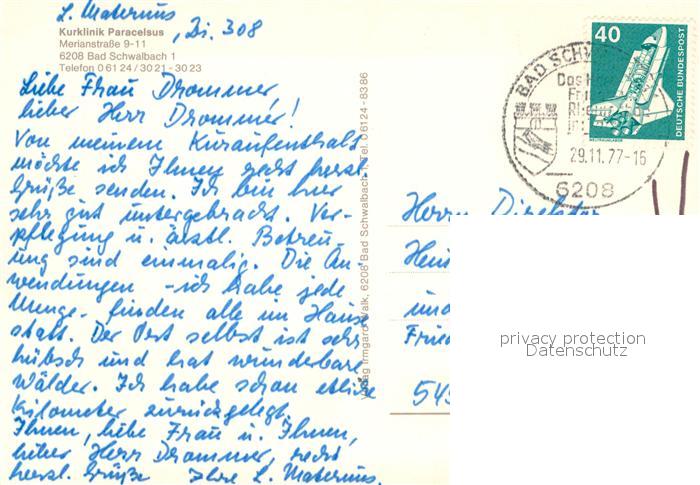 L. Maternus
Zi. 308
Kurklinik Paracelsus
Merianstraße 9-11
6208 Bad Schwalbach 1
Telefon 0 61 24 / 30 21 - 30 23
Liebe Frau Drommer,
lieber Herr Drommer!
Von meinem Kuraufenthalt
möchte ich Ihnen recht herzl.
Grüße senden. Ich bin hier
sehr gut untergebracht. Ver-
pflegung u. ärztl. Betreu-
ung sind einmalig. Die An-
wendungen - ich habe jede
Menge - finden alle im Hause
statt. Der Ort selbst ist sehr
hübsch und hat wunderbare
Wälder. Ich habe schon etliche
Kilometer zurückgelegt.
Ihnen, liebe Frau u. Ihnen,
lieber Herr Drommer, recht
herzl. Grüße Ihre L. Maternus.
Verlag Irmgard Walk, 6208 Bad Schwalbach 1, Tel. 0 61 24 - 83 86
40
DEUTSCHE BUNDESPOST
WELTRAUMLABOR
BAD SCHW
Das
29.11.77-16
6208
Herrn Direktor
Hei
und
Fried
545
privacy protection
Datenschutz